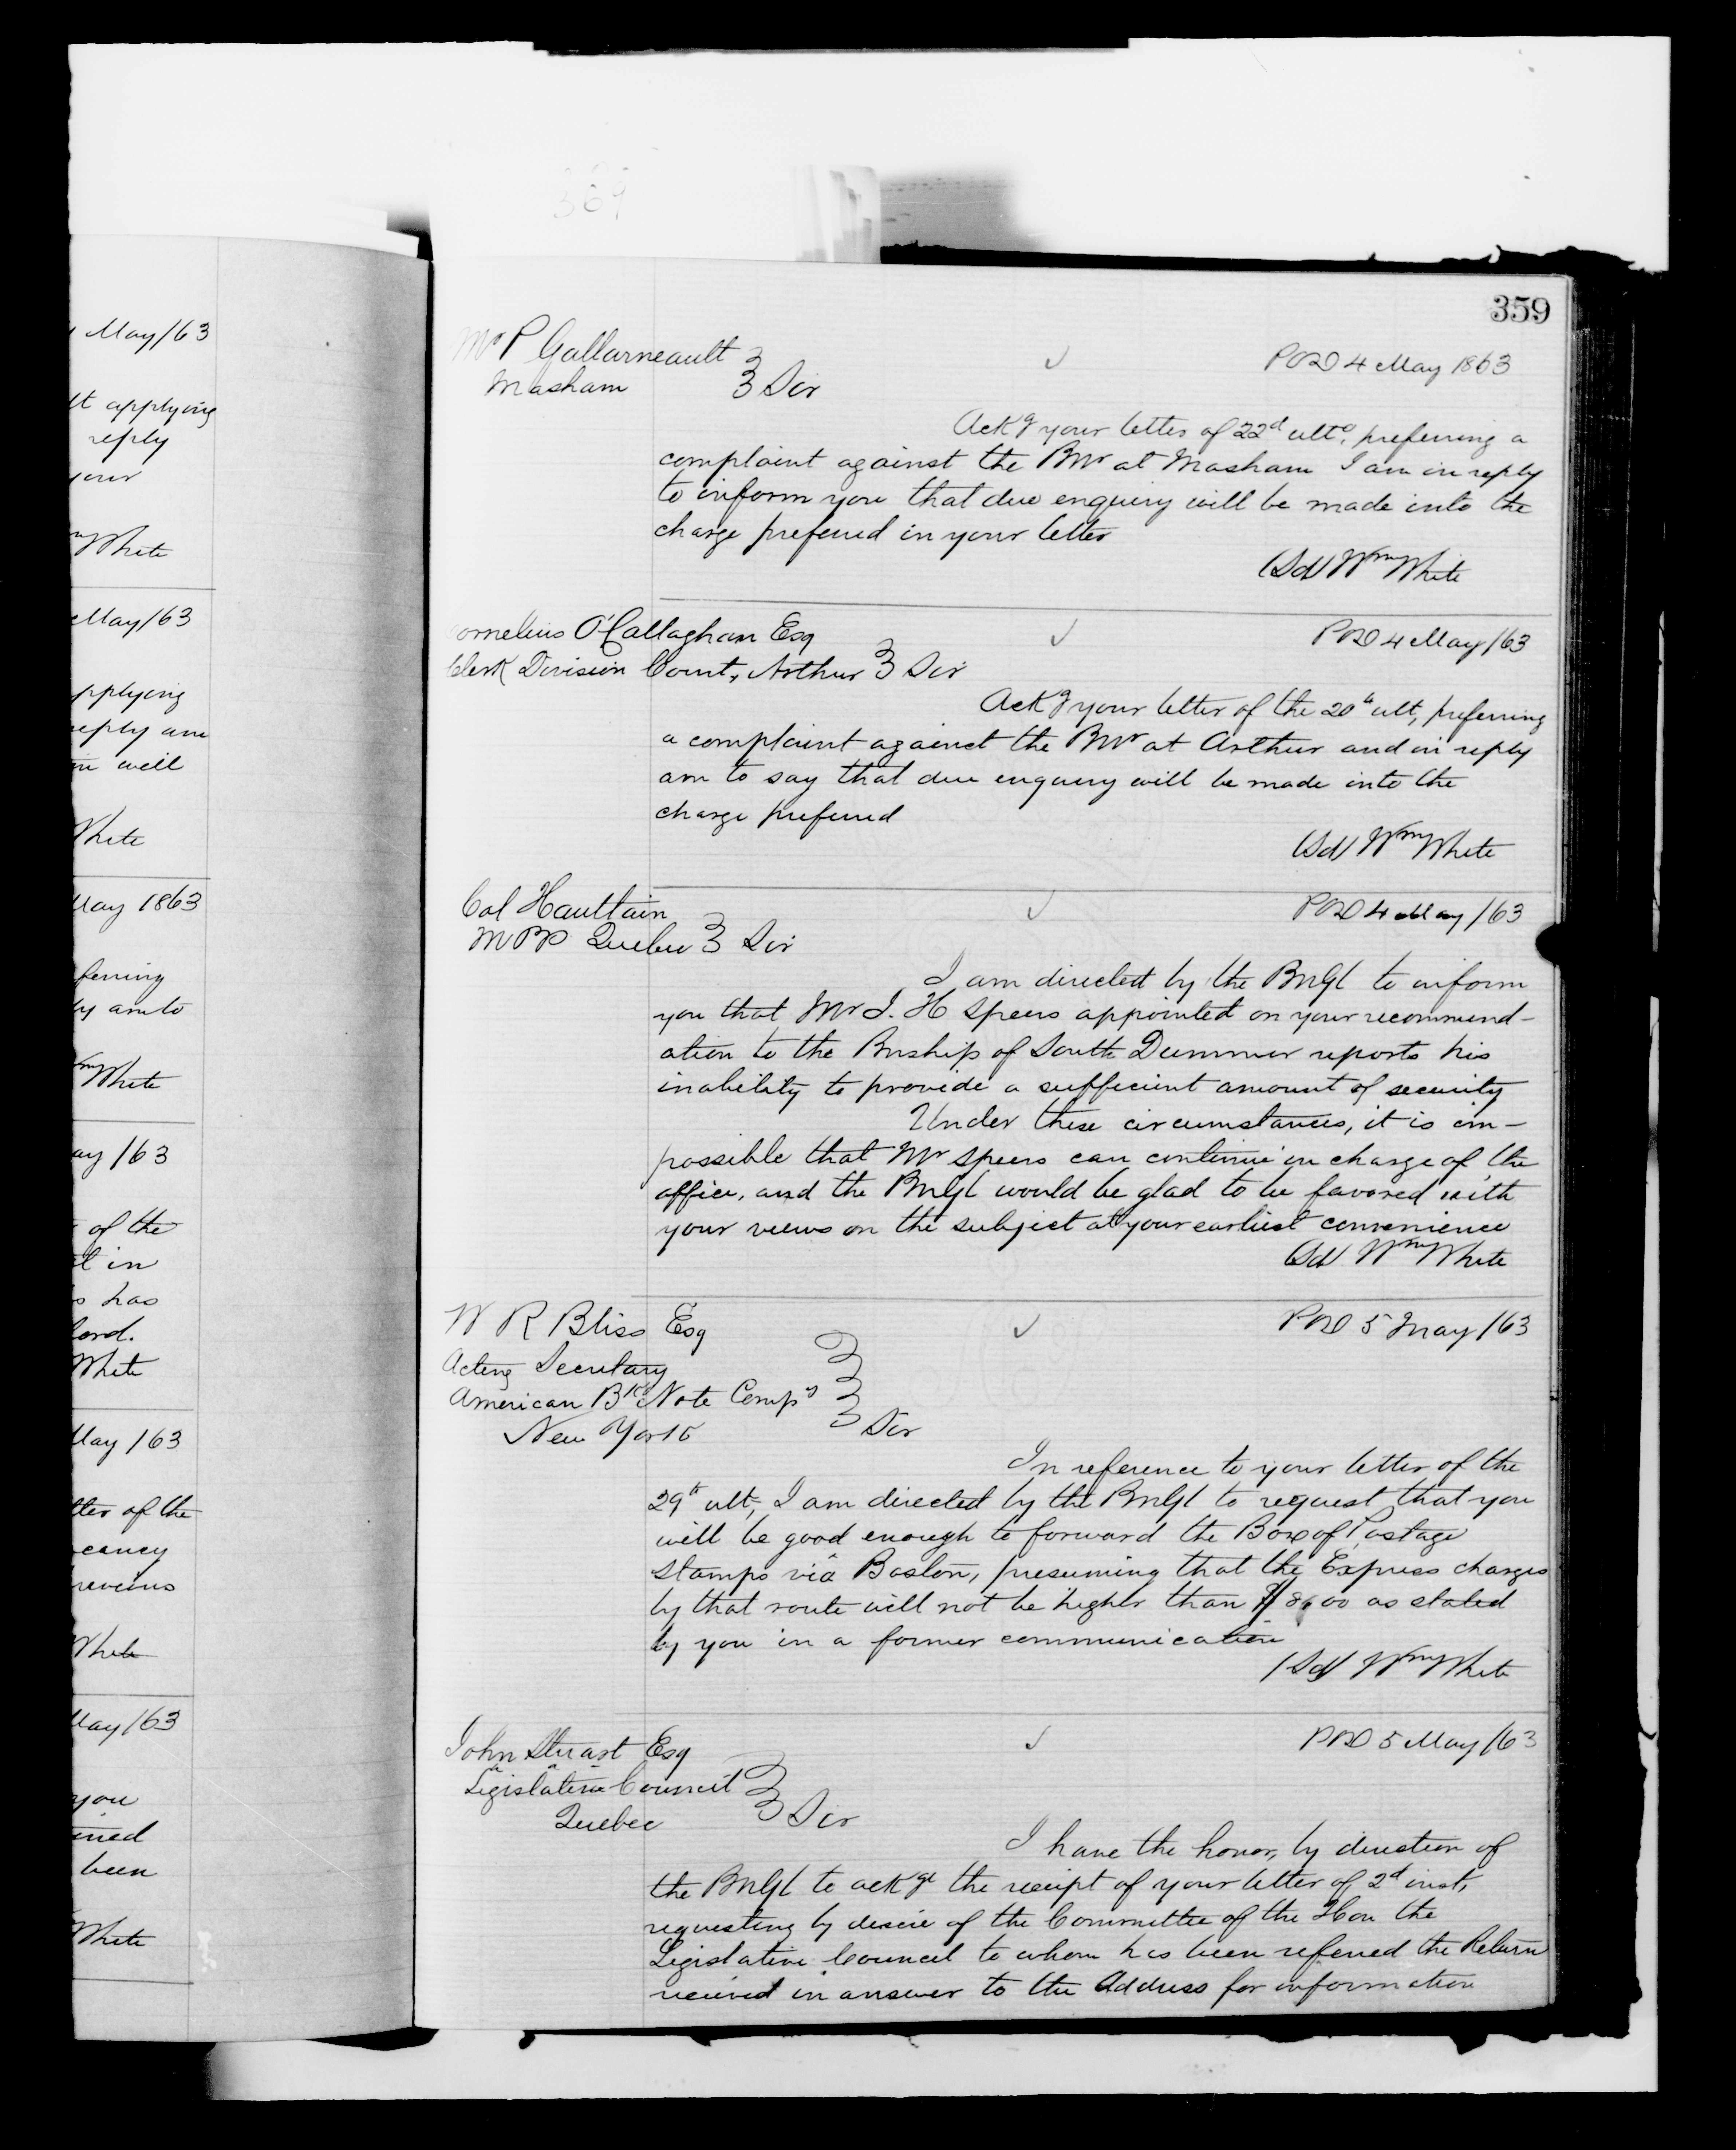 369
May/63
lt applying
reply
your
WmWhite
May/63
applying
reply am
well
White
May 1863
ferring
ly am to
WmWhite
ay /63
of the
t in
s has
lord.
White
May /63
tter of the
cancy
White
May/63
you
ined
been
White
359
Mr P Gallarneault
Masham } Sir
POD 4 May 1863
Ackg your letter of 22d ulto, preferring a
complaint against the PMr at Masham I am in reply
to inform you that due enquiry will be made into the
charge preferred in your letter
(Sd) WmWhite
Cornelius O'Callaghan Esq
Clerk Division Court, Arthur } Sir
POD 4 May/63
Ackg your letter of the 20th ult, preferring
a complaint against the PMr at Arthur and in reply
am to say that due enquiry will be made into the
charge preferred
(Sd) WmWhite
Col Haultain
MPP Quebec } Sir
POD 4 May /63
I am directed by the PMGl to inform
you that Mr J. H Speers appointed on your recommend-
ation to the PMship of South Dummer reports his
inability to provide a sufficient amount of security
Under these circumstances, it is im-
possible that Mr Speers can continue in charge of the
office, and the PMGl would be glad to be favored with
your views on the subject at your earliest convenience
(Sd) WmWhite
W R Bliss Esq
Acting Secretary
American Bk Note Compy
New York } Sir
POD 5 May /63
In reference to your letter of the
29th ult, I am directed by the PMGl to request that you
will be good enough to forward the Box of Postage
Stamps viâ Boston, presuming that the Express charges
by that route will not be higher than $8.00 as stated
by you in a former communication
(Sd) WmWhite
John Stuart Esq
Legislative Council
Quebec } Sir
POD 5 May /63
I have the honor, by direction of
the PMGl to ackge the receipt of your letter of 2d inst,
requesting by desire of the Committee of the Hon the
Legislative Council to whom has been referred the Return
received in answer to the Address for information